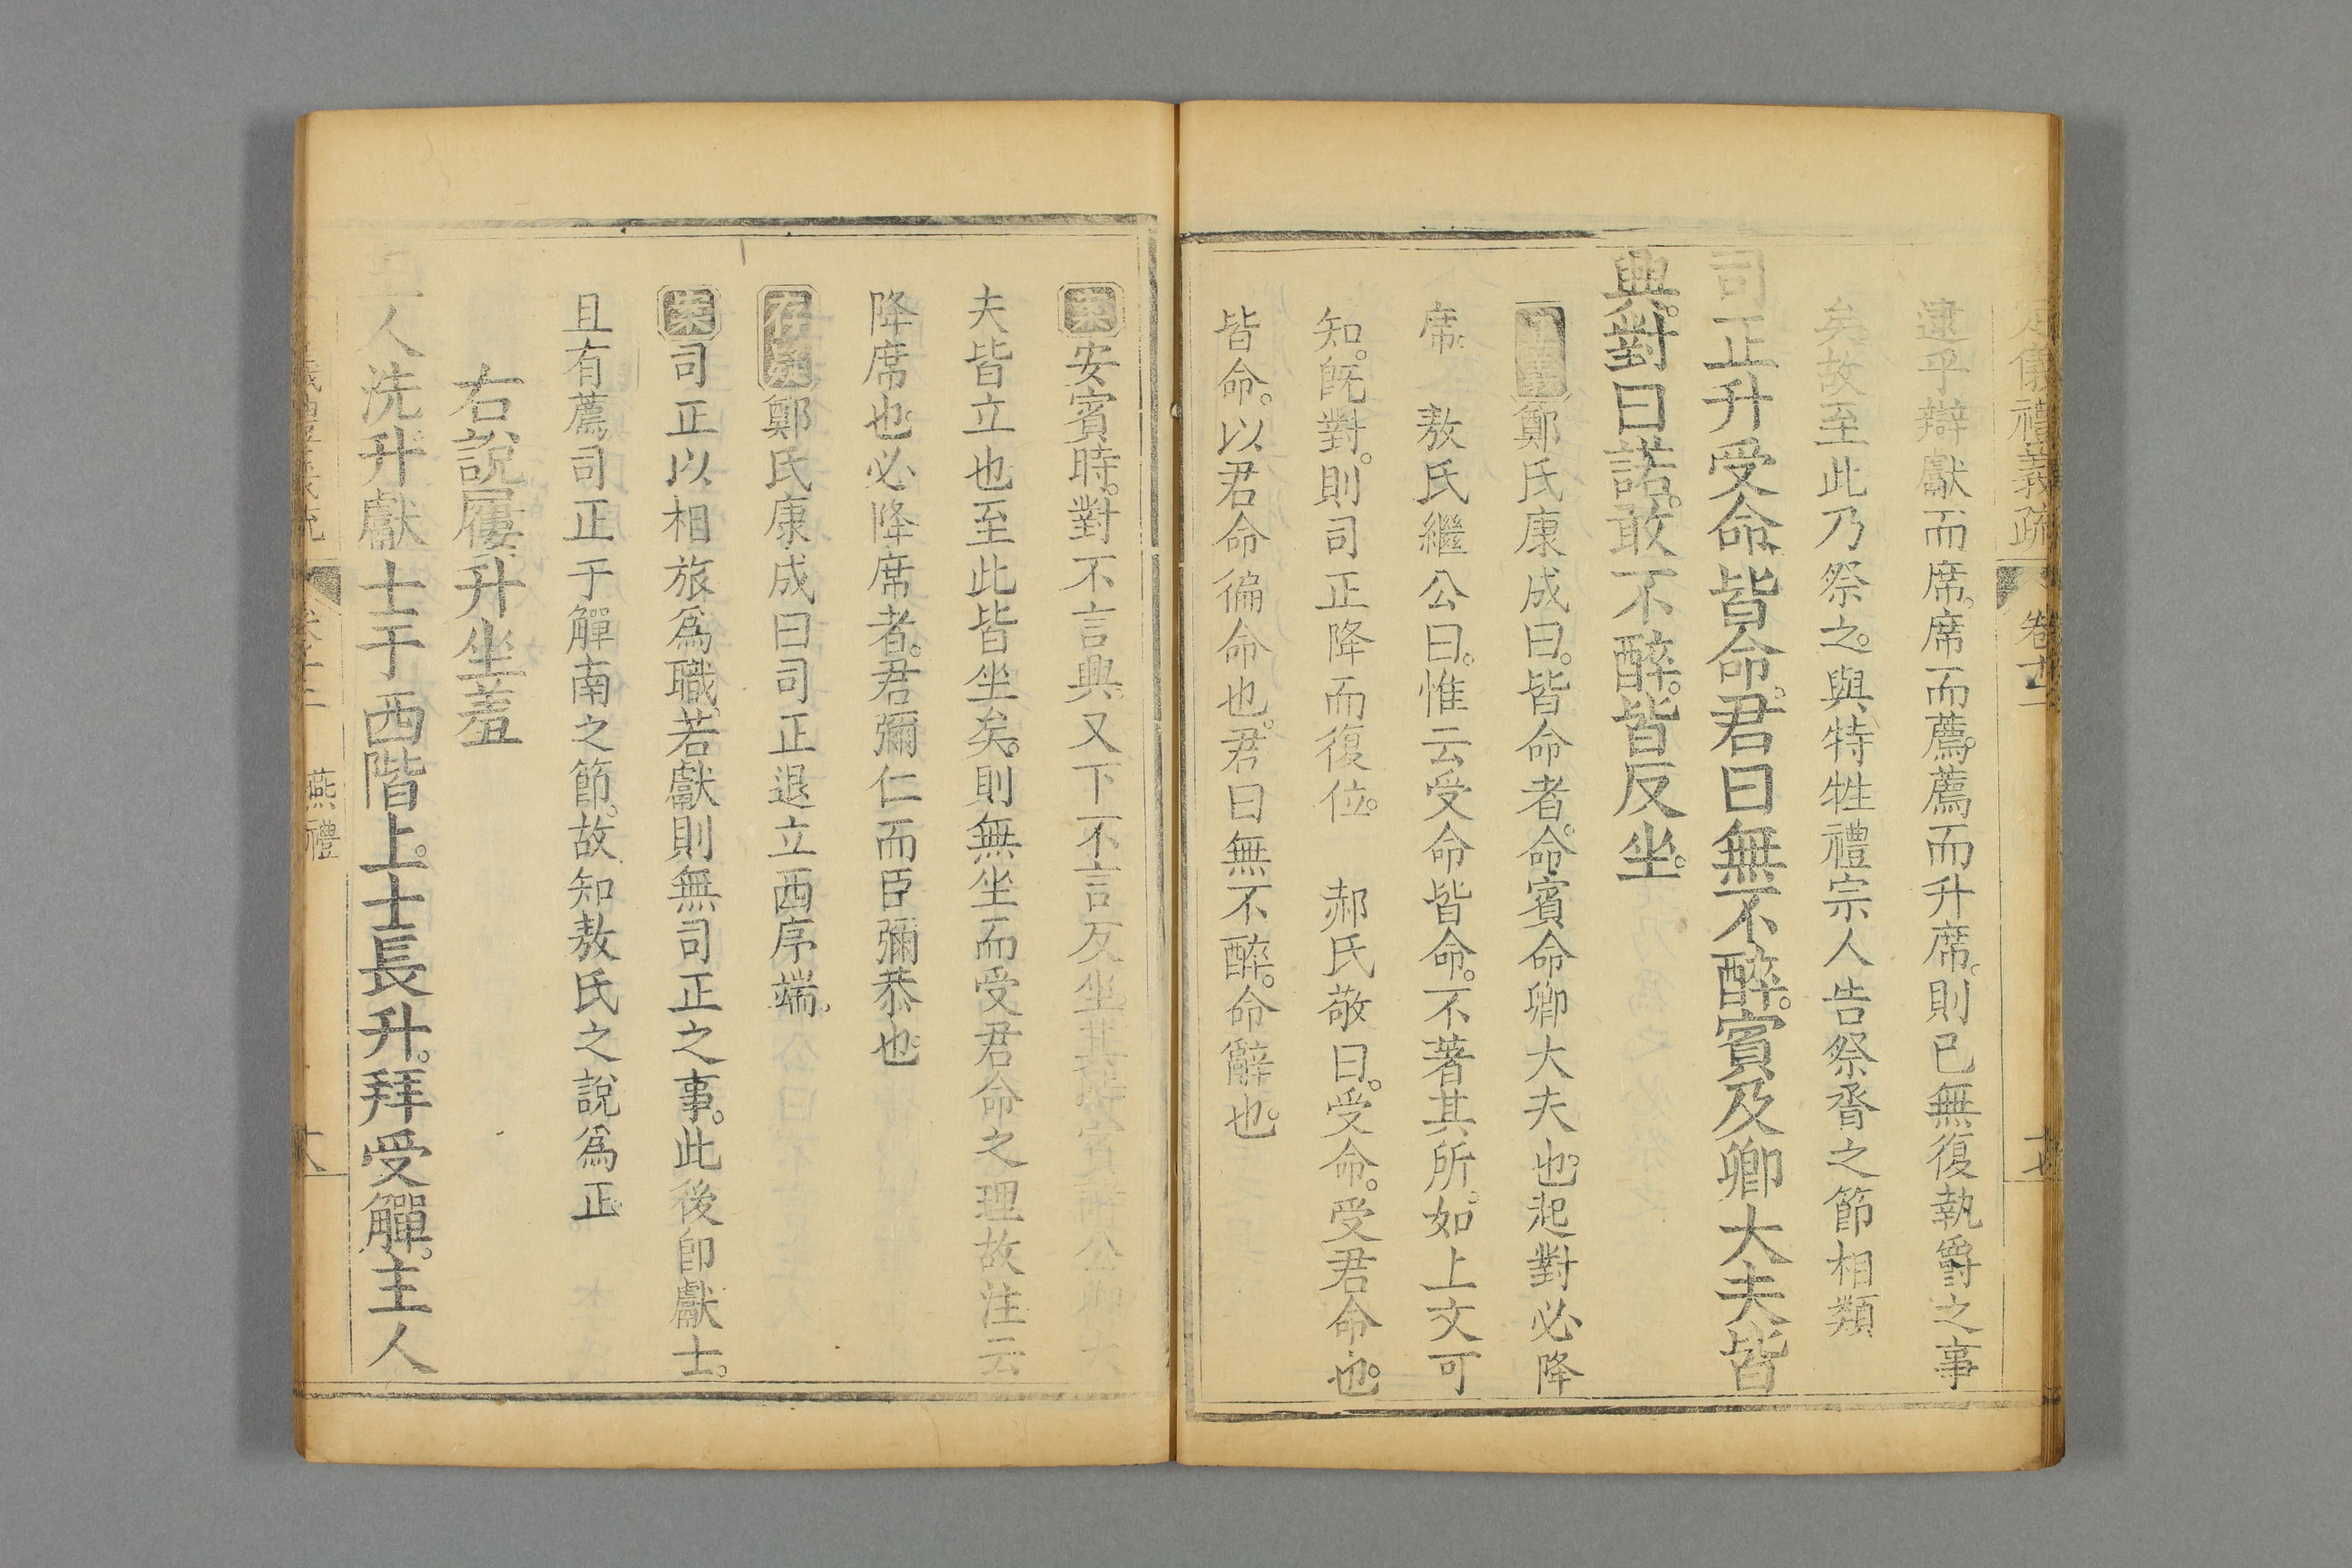 儀禮義疏 卷十二 十七
逮乎辯獻而席。席而薦。薦而升席。則已無復執爵之事
矣。故至此乃祭之。與特牲禮宗人告祭脀之節相類
司正升受命。皆命。君曰無不醉。賓及卿大夫皆
興。對曰諾。敢不醉。皆反坐。
鄭氏康成曰。皆命者。命賓命卿大夫也。起對必降
席。 敖氏繼公曰。惟云受命皆命。不著其所。如上文可
知。旣對。則司正降而復位。 郝氏敬曰。受命。受君命也。
皆命。以君命徧命也。君曰無不醉。命辭也。
案安賓時。對不言興。又下不言反坐。其公卿大
夫皆立也至此皆坐矣。則無坐而受君命之理故注云
降席也。必降席者。君彌仁而臣彌恭也
存疑鄭氏康成曰司正退立西序端。
案司正以相旅爲職。若獻則無司正之事。此後卽獻士。
且有薦司正于觶南之節。故知敖氏之說爲正
右說屨升坐羞
主人洗升獻士于西階上。士長升。拜受觶。主人
燕禮 十八